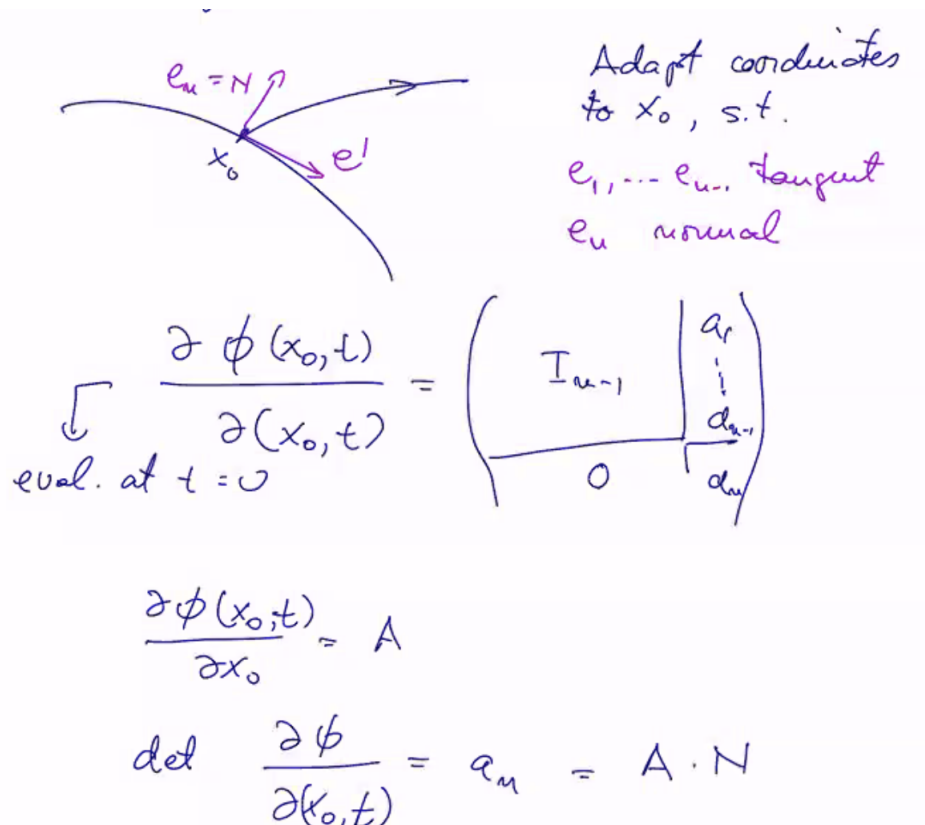 Adapt coordinates
e_n = N
to x₀, s.t.
x₀
e'
e₁, ... e_{n-1} tangent
e_n normal
∂ϕ(x₀,t) / ∂(x₀,t) = ( I_{n-1} | a₁ ⋮ a_{n-1} ; 0 | a_n )
eval. at t = 0
∂ϕ(x₀,t) / ∂x₀ = A
det ∂ϕ / ∂(x₀,t) = a_n = A · N